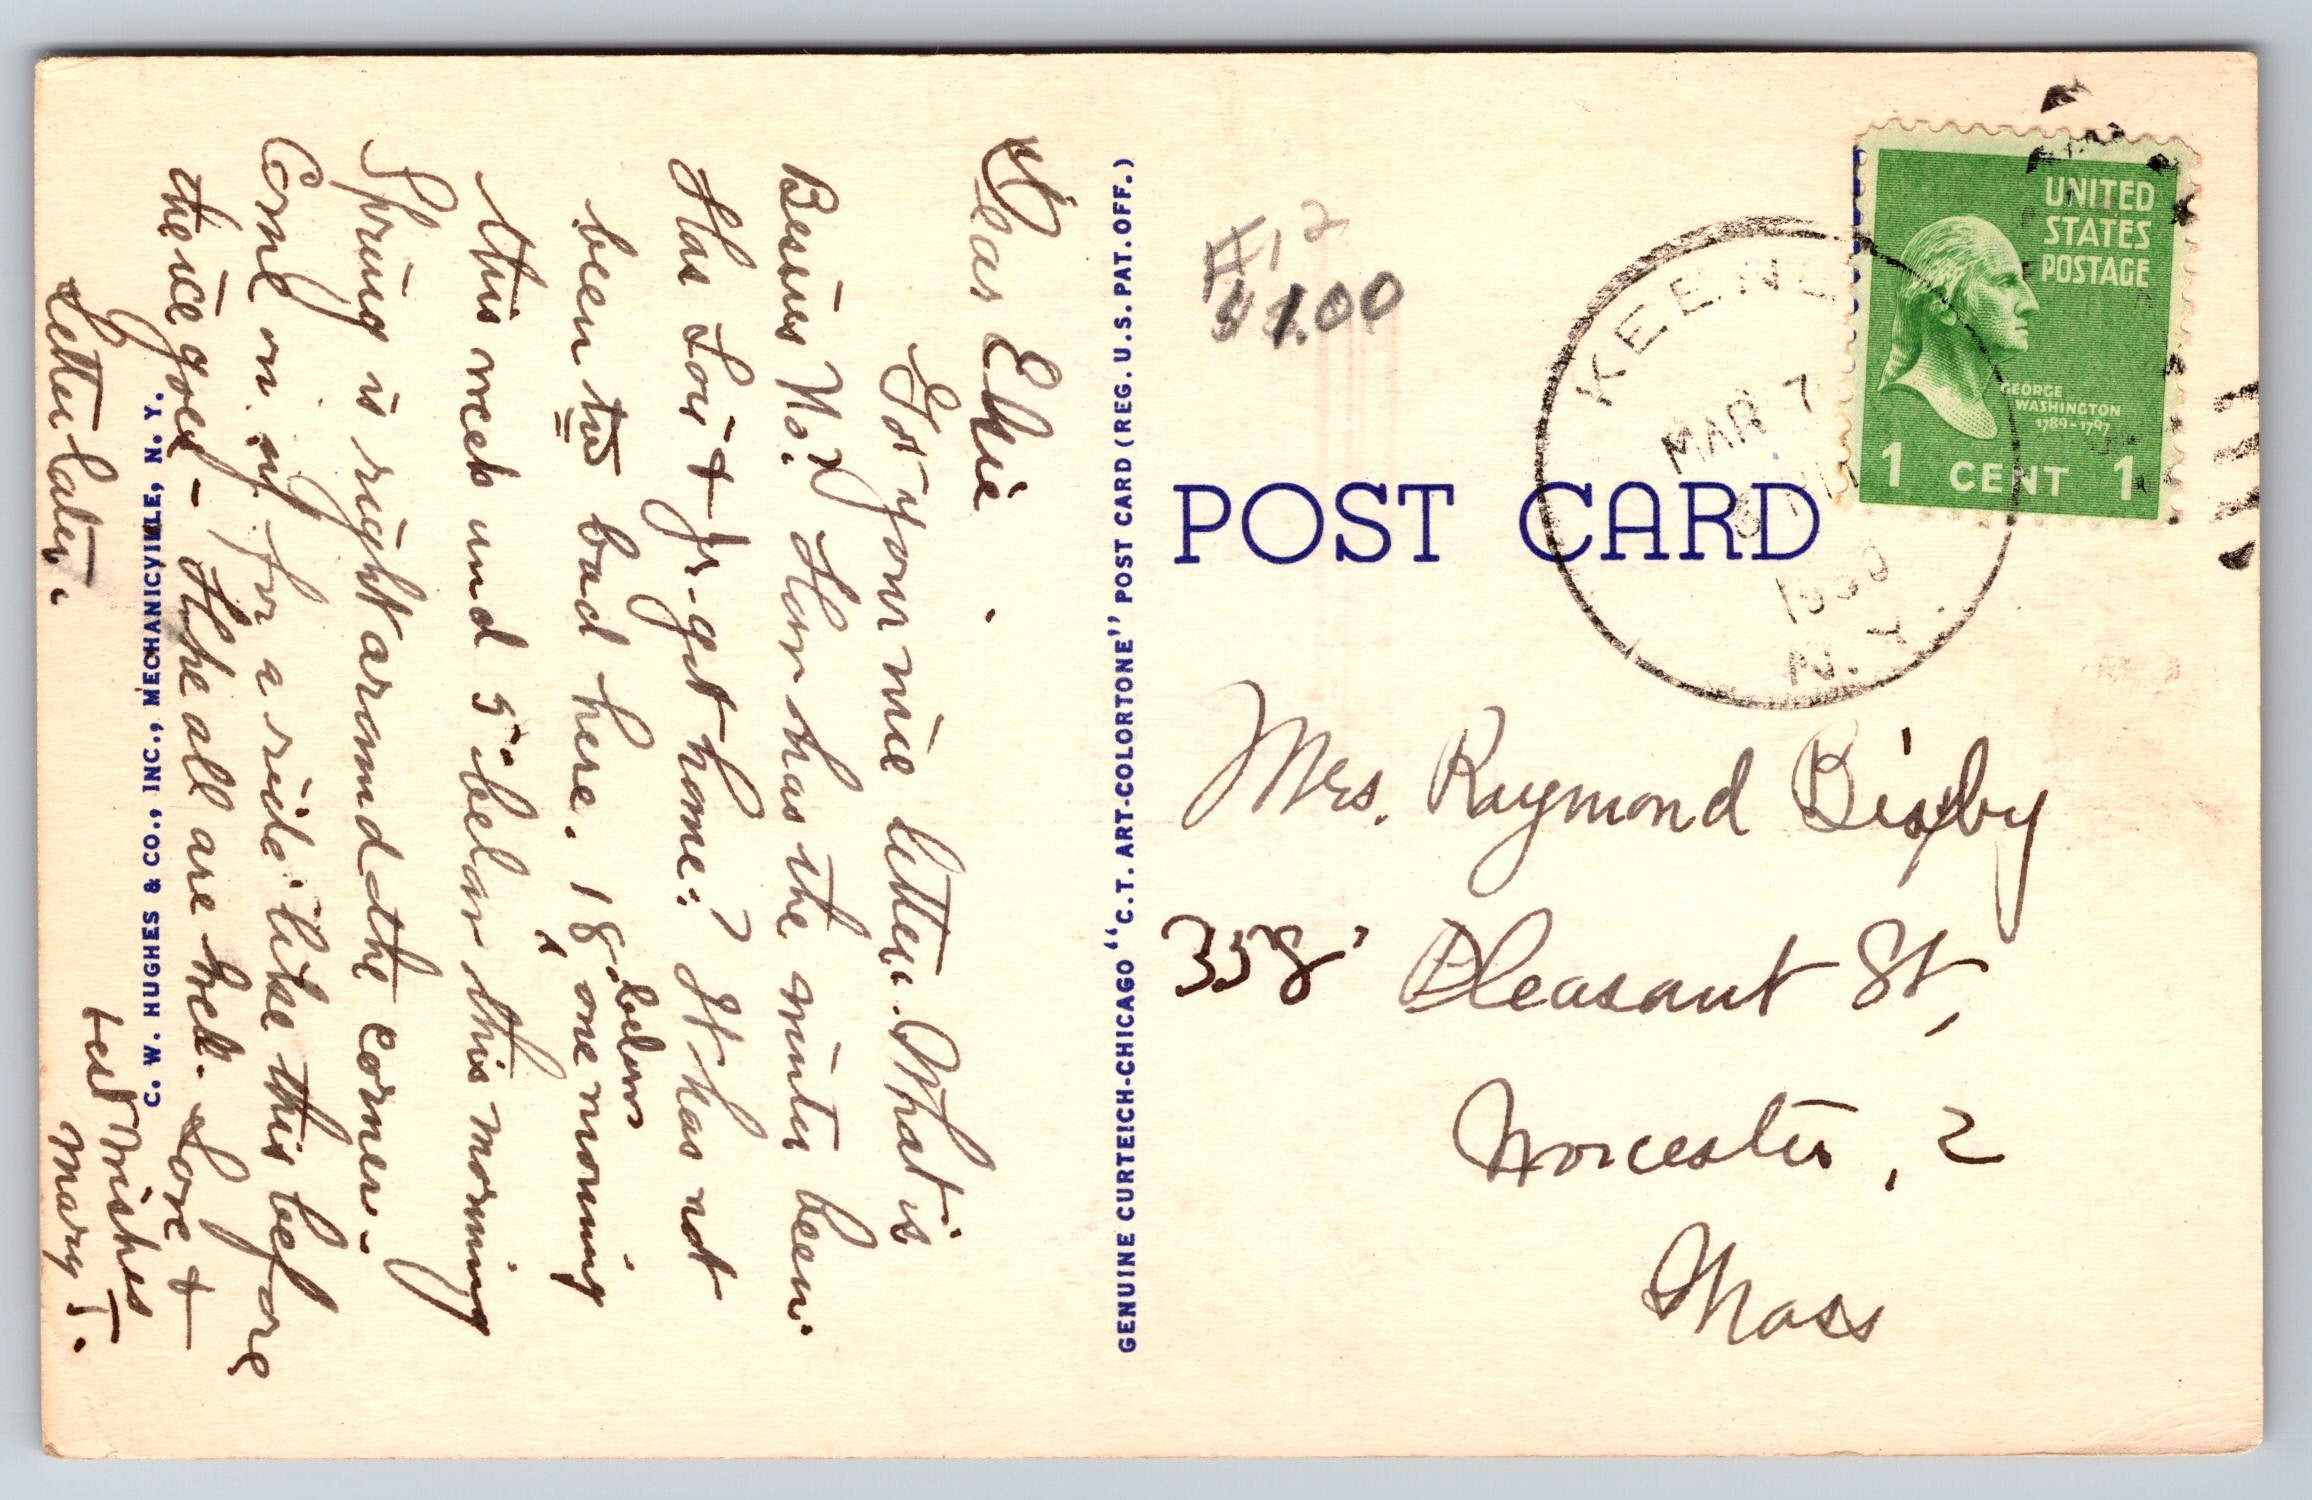 Dear Elsie
Got your nice letter. What is
Bessies No.? How has the winter been.
Has Lois & Jr. got home? It has not
been two bad here. 18 below one morning
this week and 5° below this morning
Spring is right around the corner.
Come on up for a ride like this before
the ice goes - We all are well. Love &
best wishes
Mary T.
Letter later.
C. W. HUGHES & CO., INC., MECHANICVILLE, N. Y.
GENUINE CURTEICH-CHICAGO "C.T. ART-COLORTONE" POST CARD (REG. U.S. PAT. OFF.)
12
1.00
POST CARD
KEENE
MAR 7
N.Y.
UNITED
STATES
POSTAGE
GEORGE
WASHINGTON
1789-1797
1 CENT 1
Mrs. Raymond Bixby
358 Pleasant St,
Worcester, 2
Mass